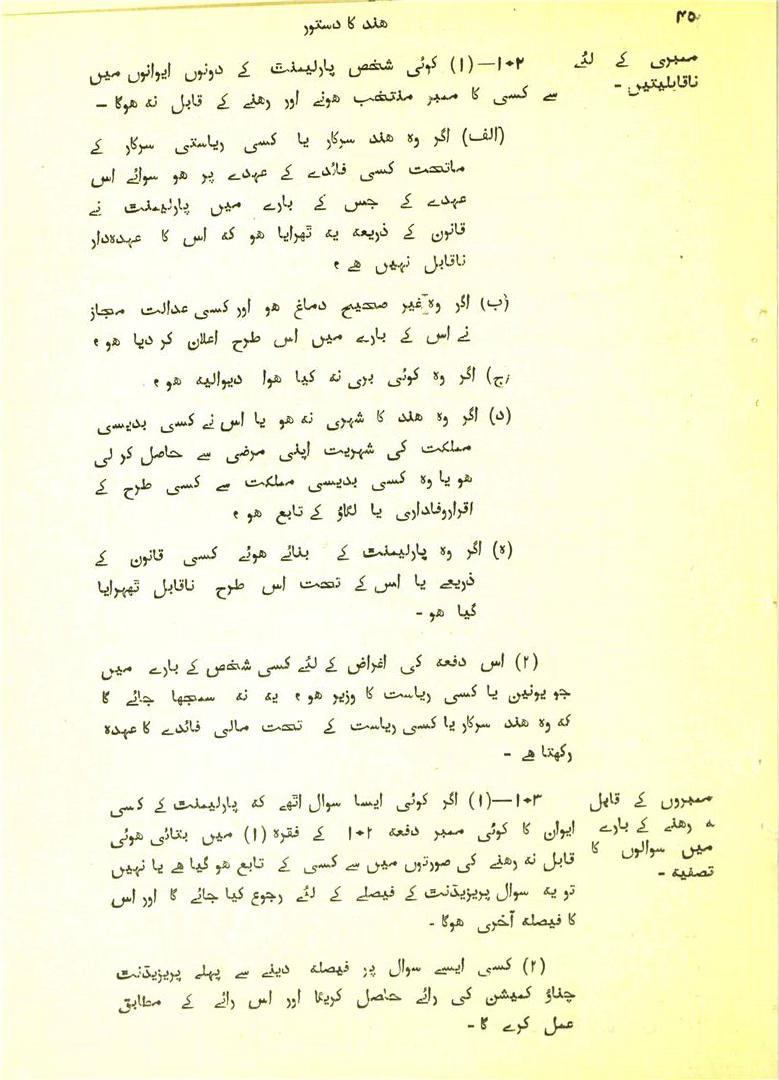 ۴۵
هند کا دستور
ممبری کے لئے
ناقابلیتیں -
۱۰۲—(۱) کوئی شخص پارلیمنٹ کے دونوں ایوانوں میں
سے کسی کا ممبر منتخب هونے اور رهنے کے قابل نه هوگا -
(الف) اگر وہ هند سرکار یا کسی ریاستی سرکار کے
ماتحت کسی فائدے کے عہدے پر هو سوائے اس
عہدے کے جس کے بارے میں پارلیمنٹ نے
قانون کے ذریعه یه ٹهرایا هو که اس کا عہدہدار
ناقابل نہیں هے ؟
(ب) اگر وہ غیر صحیح دماغ هو اور کسی عدالت مجاز
نے اس کے بارے میں اس طرح اعلان کر دیا هو ؟
(ج) اگر وہ کوئی بری نه کیا هوا دیوالیه هو ؟
(د) اگر وہ هند کا شہری نه هو یا اس نے کسی بدیسی
مملکت کی شہریت اپنی مرضی سے حاصل کر لی
هو یا وہ کسی بدیسی مملکت سے کسی طرح کے
اقرار وفاداری یا لگاؤ کے تابع هو ؟
(ہ) اگر وہ پارلیمنٹ کے بنائے هوئے کسی قانون کے
ذریعے یا اس کے تحت اس طرح ناقابل ٹھہرایا
گیا هو -
(۲) اس دفعه کی اغراض کے لئے کسی شخص کے بارے میں
جو یونین یا کسی ریاست کا وزیر هو ؟ یه نه سمجها جائے گا
که وہ هند سرکار یا کسی ریاست کے تحت مالی فائدے کا عہدہ
رکهتا هے -
ممبروں کے قابل
نه رهنے کے بارے
میں سوالوں کا
تصفیه -
۱۰۳—(۱) اگر کوئی ایسا سوال اٹهے که پارلیمنٹ کے کسی
ایوان کا کوئی ممبر دفعه ۱۰۲ کے فقرہ (۱) میں بتائی هوئی
قابل نه رهنے کی صورتوں میں سے کسی کے تابع هو گیا هے یا نہیں
تو یه سوال پریزیڈنٹ کے فیصلے کے لئے رجوع کیا جائے گا اور اس
کا فیصله آخری هوگا -
(۲) کسی ایسے سوال پر فیصله دینے سے پہلے پریزیڈنٹ
چناؤ کمیشن کی رائے حاصل کریگا اور اس رائے کے مطابق
عمل کرے گا -